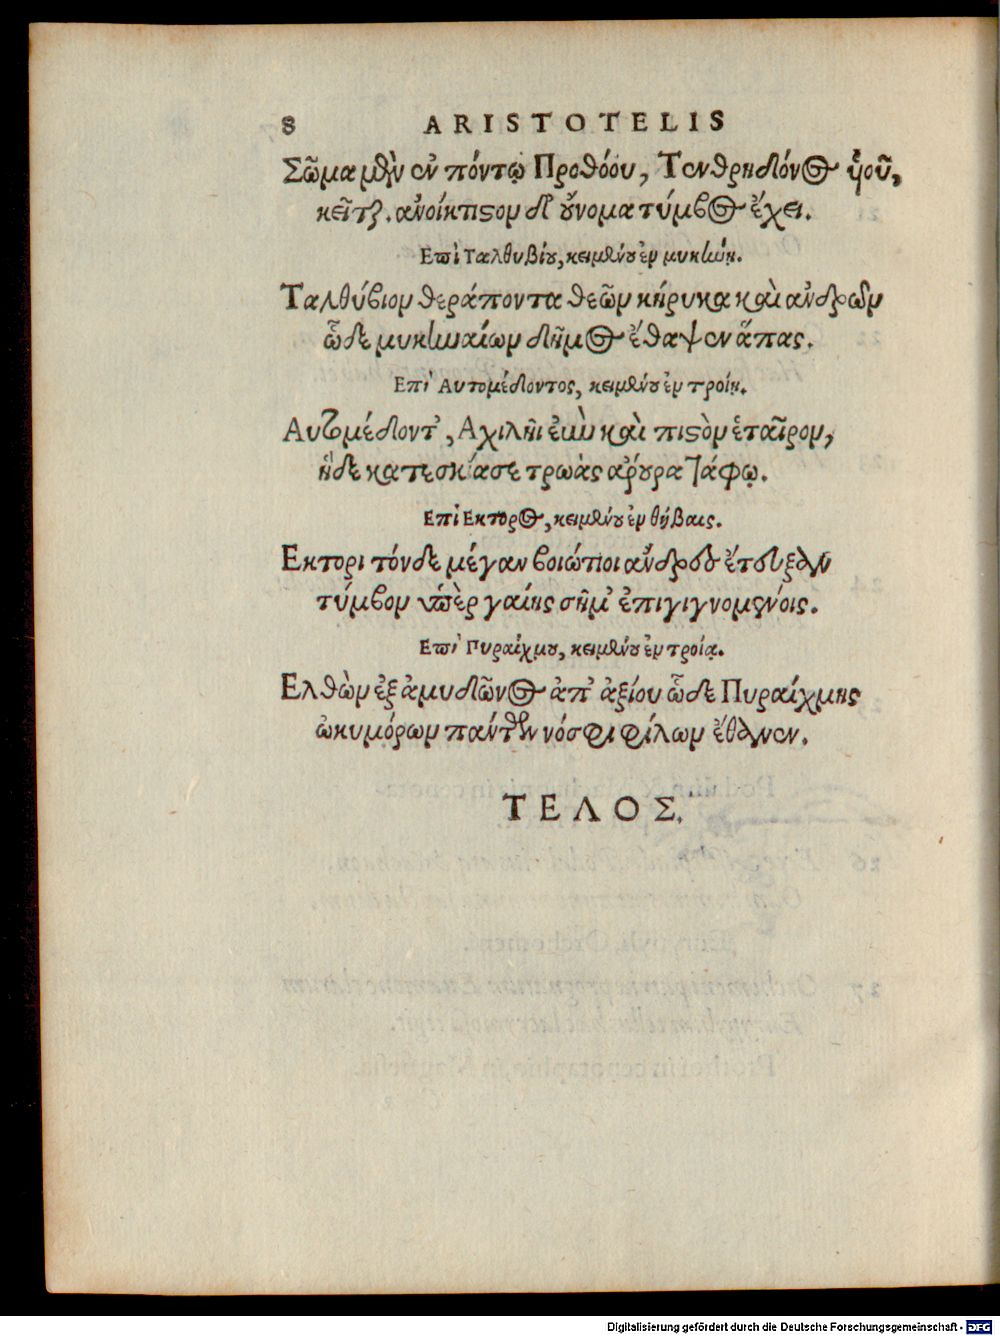 8 ARISTOTELIS
Σῶμα μὲν ἐν πόντῳ Προθόου, Τενθρηδόνος ὑοῦ,
κεῖται. ἀνοίκτιστον δ' οὔνομα τύμβος ἔχει.
Επὶ Ταλθυβίου, κειμένου ἐν μυκήνη.
Ταλθύβιον θεράποντα θεῶν κήρυκα καὶ ἀνδρῶν
ὧδε μυκηναίων δῆμος ἔθαψεν ἅπας.
Επὶ Αυτομέδοντος, κειμένου ἐν τροίη.
Αυτομέδοντ', Αχιλῆι ἐϋὺν καὶ πιστὸν ἑταῖρον,
ἥδε κατεσκεύασε τρωὰς ἄρουρα τάφῳ.
Επὶ Εκτορος, κειμένου ἐν θήβαις.
Εκτορι τόνδε μέγαν βοιώτιοι ἄνδρες ἔτευξαν
τύμβον ὑπὲρ γαίης σῆμ' ἐπιγιγνομένοις.
Επὶ Πυραίχμου, κειμένου ἐν τροίᾳ.
Ελθὼν ἐξ ἀμυδῶνος ἀπ' ἀξίου ὧδε Πυραίχμης
ὠκυμόρων πάντων νόσφι φίλων ἔθανεν.
ΤΕΛΟΣ.
Digitalisierung gefördert durch die Deutsche Forschungsgemeinschaft - DFG